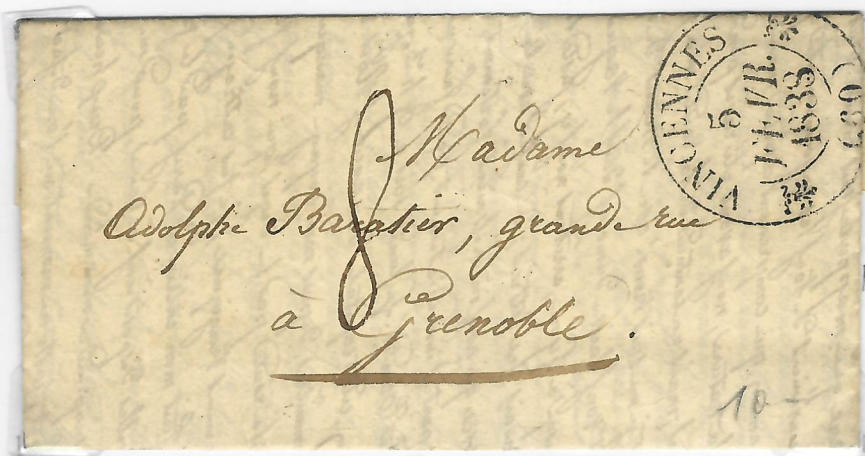 VINCENNES
5
FEVR.
1838
(68)
8
Madame
Adolphe Baratier, grande rue
à Grenoble.
10 -